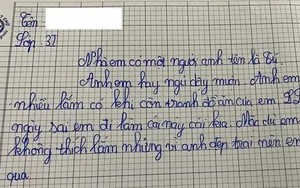 Tên:
Lớp: 3I
Nhà em có một người anh tên là Tú.
Anh em hay ngủ dậy muộn. Anh em
nhiều lắm có khi còn tranh đồ ăn của em.
ngày sai em đi làm cái này cái kia. Mặc dù em
không thích lắm nhưng vì anh đẹp trai nên em
qua